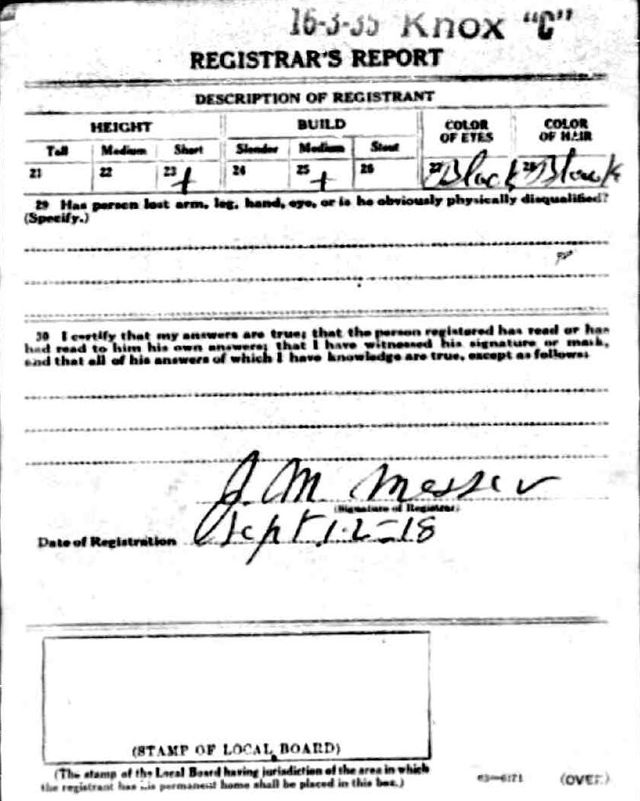 16-3-35 Knox "C"
REGISTRAR'S REPORT
DESCRIPTION OF REGISTRANT
HEIGHT BUILD COLOR OF EYES COLOR OF HAIR
Tall Medium Short Slender Medium Stout
21 22 23 + 24 25 + 26 27 Black 28 Black
29 Has person lost arm, leg, hand, eye, or is he obviously physically disqualified?
(Specify.)
no
30 I certify that my answers are true; that the person registered has read or has
had read to him his own answers; that I have witnessed his signature or mark,
and that all of his answers of which I have knowledge are true, except as follows:
J. M. Messer
(Signature of Registrar)
Date of Registration Sept 12-18
(STAMP OF LOCAL BOARD)
(The stamp of the Local Board having jurisdiction of the area in which
the registrant has his permanent home shall be placed in this box.)
03—6171 (OVER)